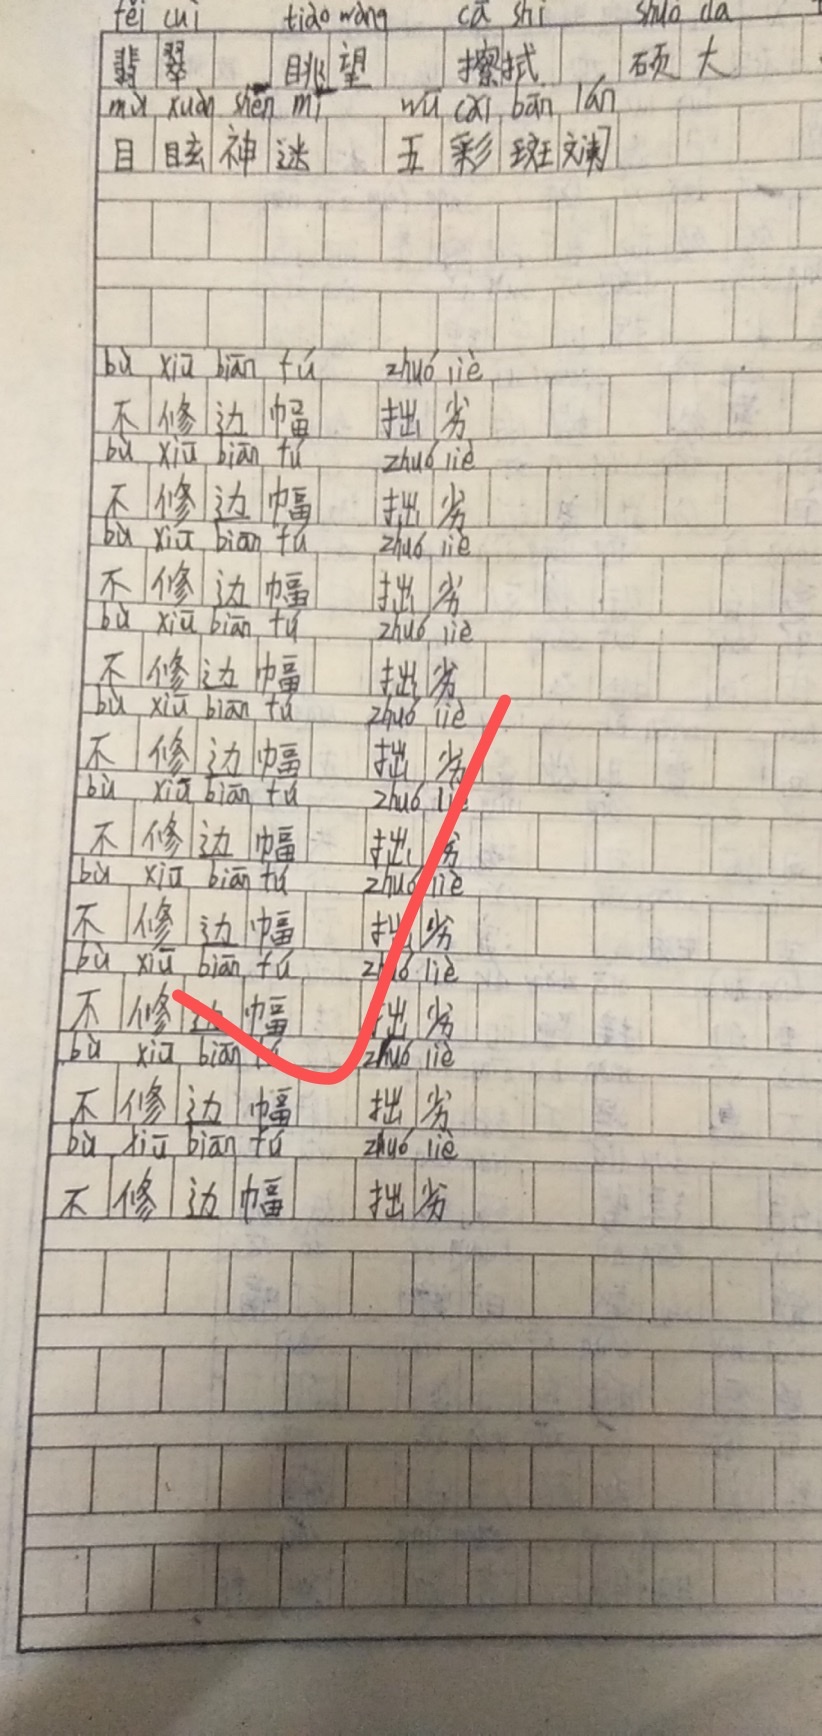 fěi cuì tiào wàng cā shì shuò dà
翡翠 眺望 擦拭 硕大
mù xuàn shén mí wǔ cǎi bān lán
目眩神迷 五彩斑斓
bù xiū biān fú zhuó liè
不修边幅 拙劣
bù xiū biān fú zhuó liè
不修边幅 拙劣
bù xiū biān fú zhuó liè
不修边幅 拙劣
bù xiū biān fú zhuó liè
不修边幅 拙劣
bù xiū biān fú zhuó liè
不修边幅 拙劣
bù xiū biān fú zhuó liè
不修边幅 拙劣
bù xiū biān fú zhuó liè
不修边幅 拙劣
bù xiū biān fú zhuó liè
不修边幅 拙劣
bù xiū biān fú zhuó liè
不修边幅 拙劣
bù xiū biān fú zhuó liè
不修边幅 拙劣